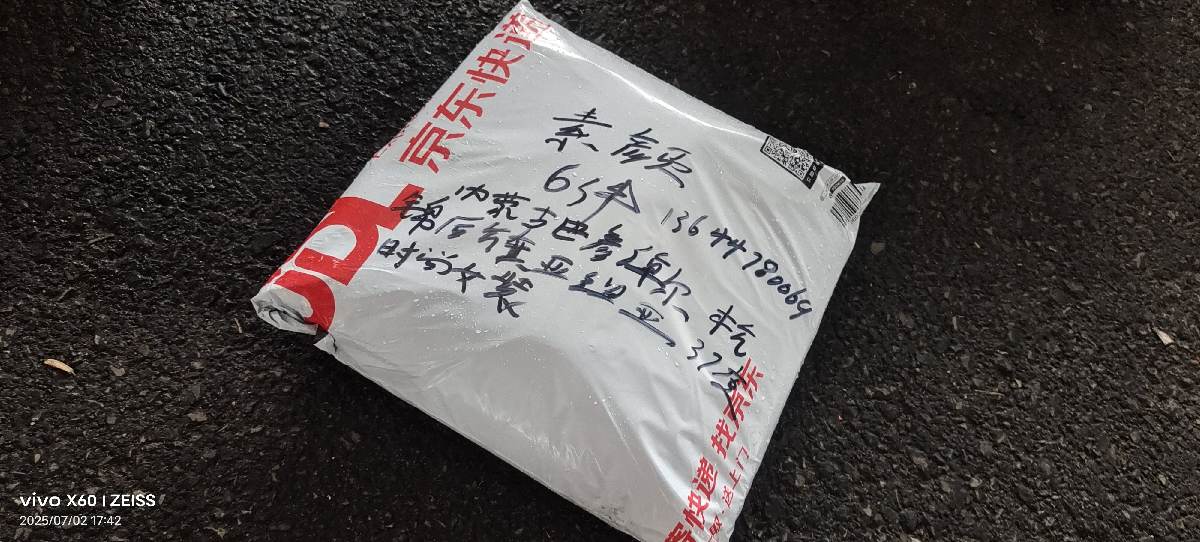 京东快递
JDL
素颜
6件 13644780069
内蒙古巴彦淖尔、杭
锦后六 亚 亚、37
时尚女装
快递 找京东
送上门
vivo X60 | ZEISS
2025/07/02 17:42